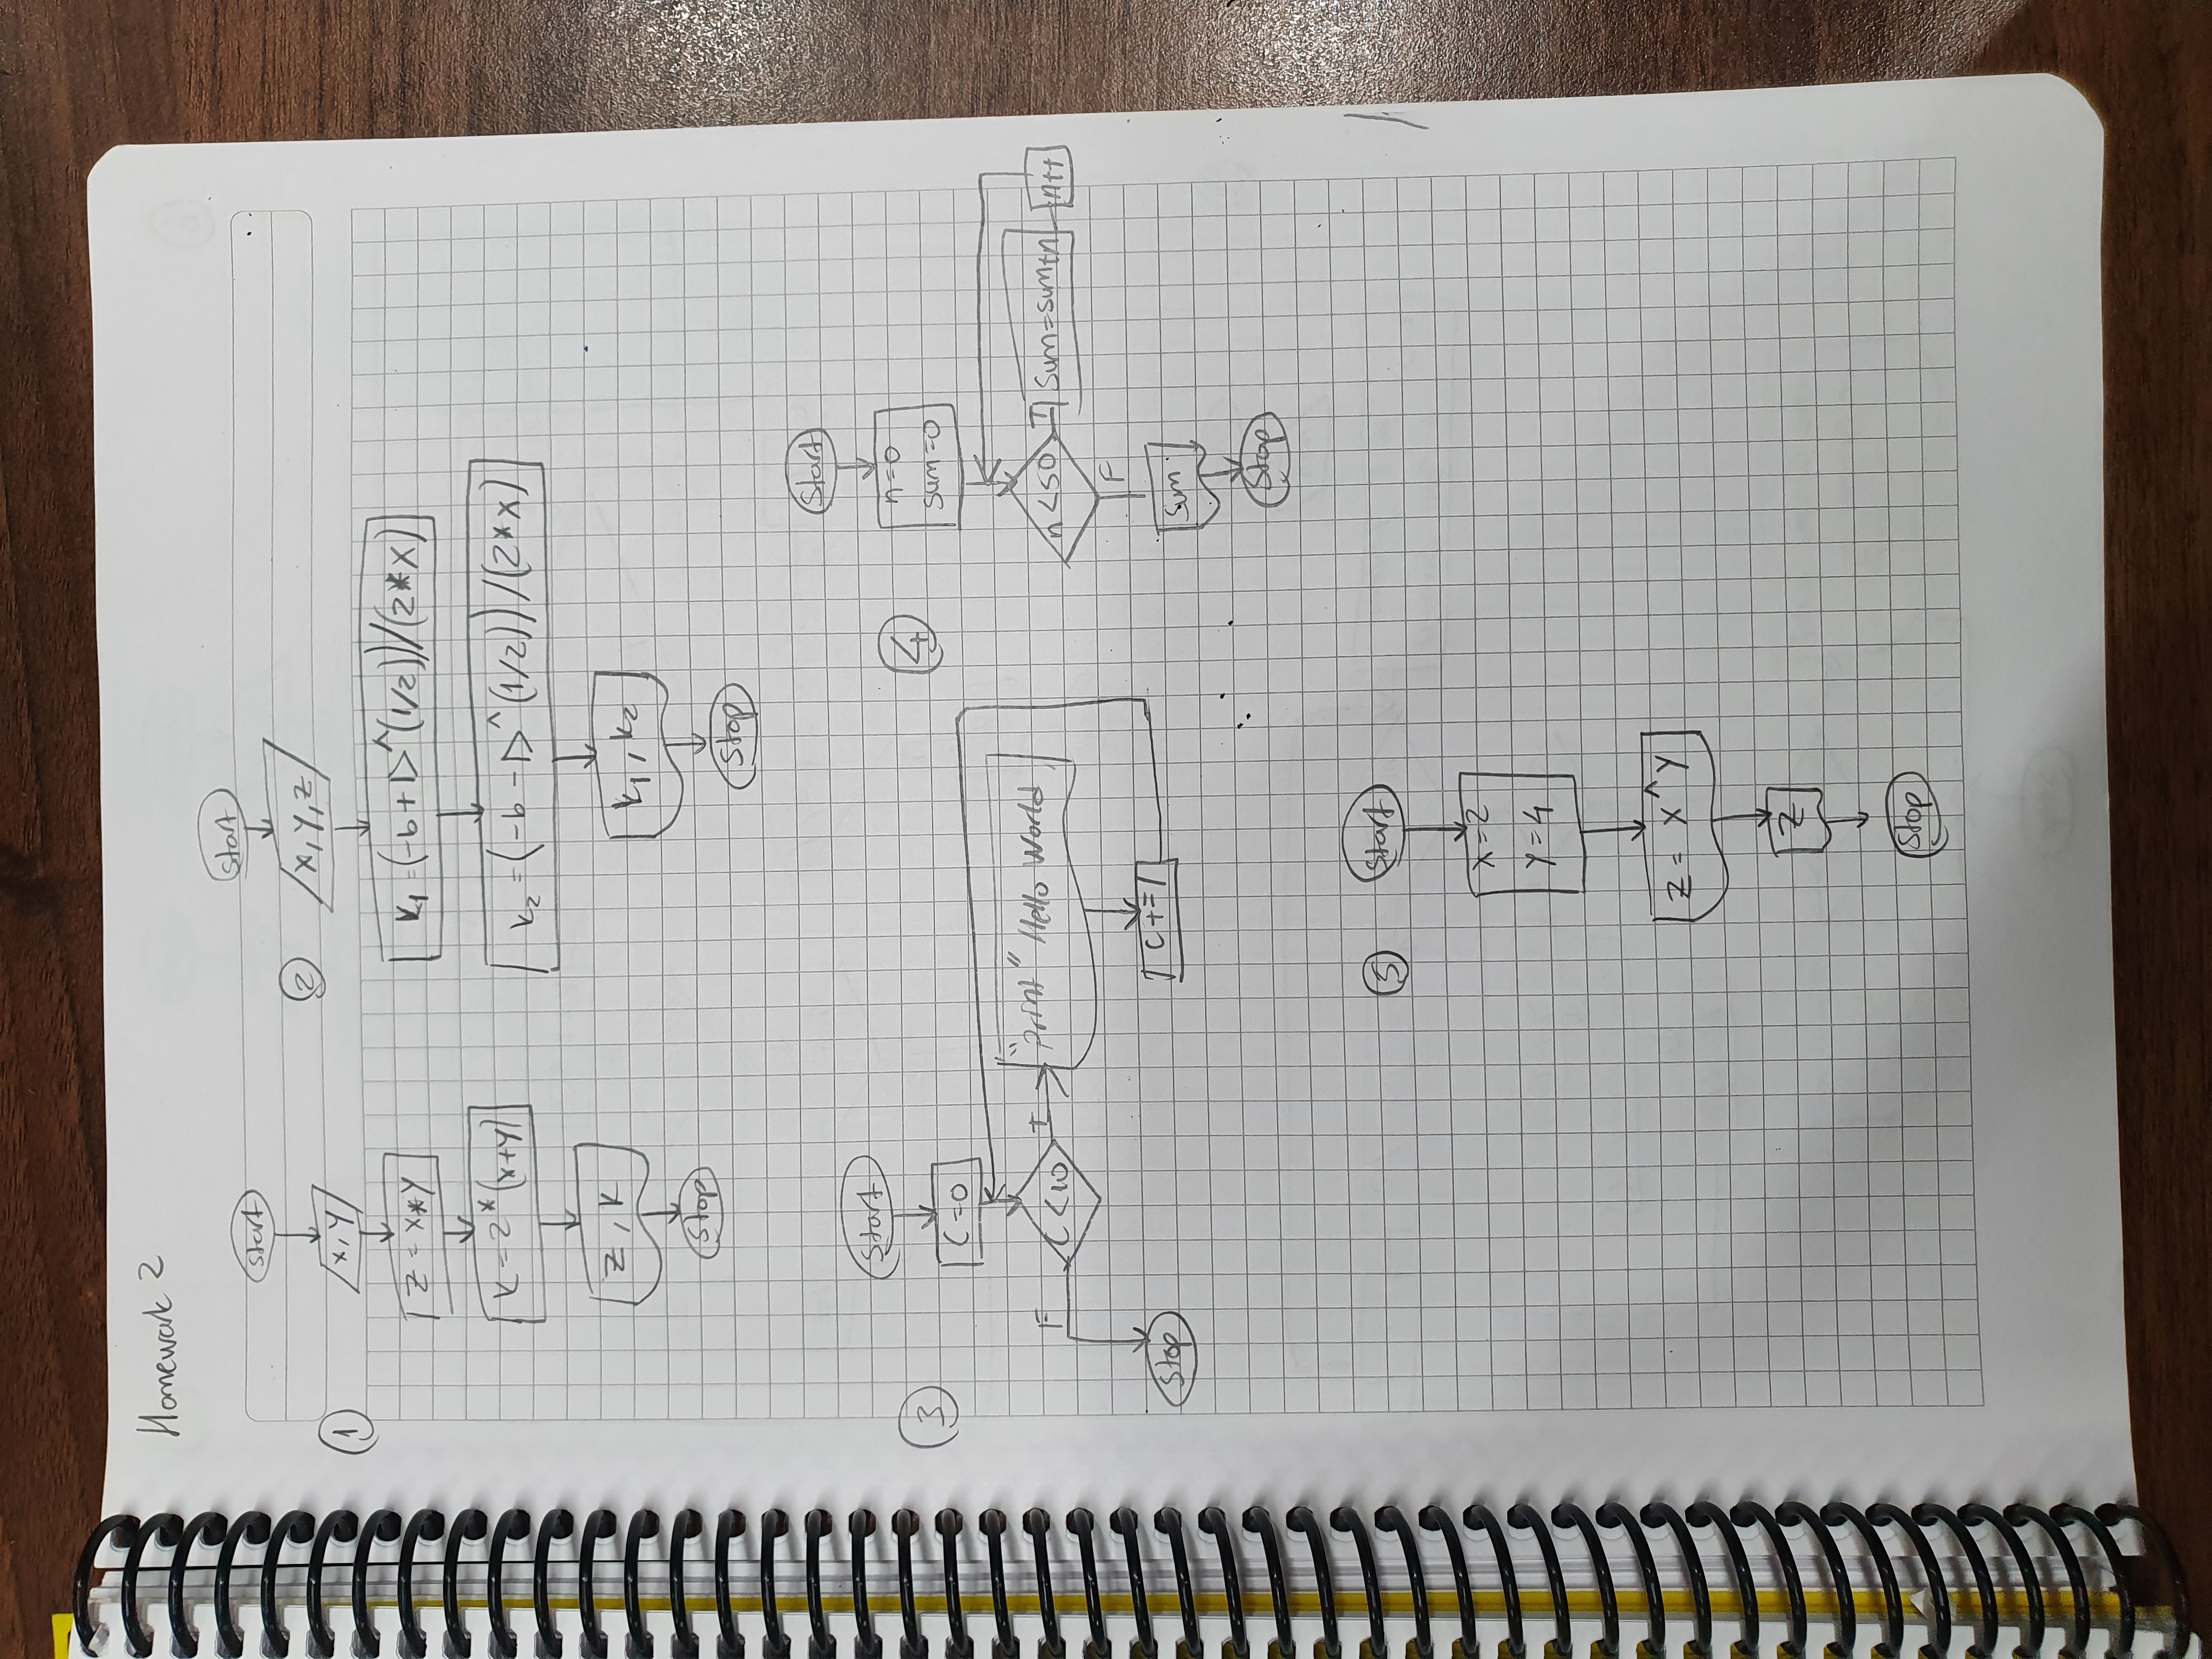 Homework 2
①
start
x, y
z = x*y
k = 2*(x+y)
z, k
Stop
②
start
x, y, z
k₁ = (-b+△^(1/2))/(2*x)
k₂ = (-b-△^(1/2))/(2*x)
k₁, k₂
Stop
③
Start
C=0
C<10
F
T
"print" Hello World
C+=1
Stop
④
Start
n=0
sum=0
n<50
T
Sum=sum+n
n++
F
Sum
Stop
⑤
Start
x=2
y=4
z = x^y
z
Stop